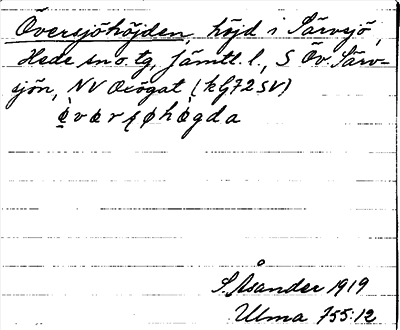 Översjöhöjden, höjd i Särvsjö,
Hede sn o. tg, Jämtl. l., S Öv. Särv-
sjön, NV Oxögat (kG72SV)
S. Åsander 1919
Ulma 755:12